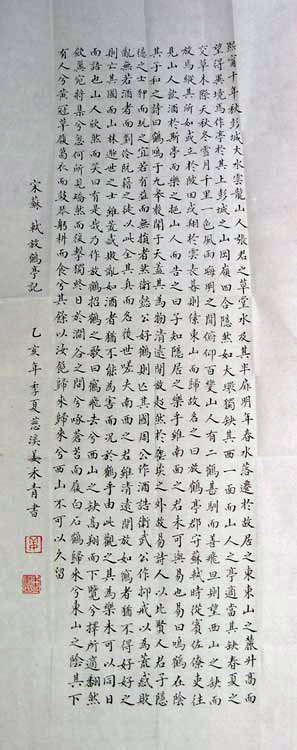 熙寧十年秋彭城大水雲龍山人張君之草堂水及其半扉明年春水落遷於故居之東東山之麓升高而
望得異境焉作亭於其上彭城之山岡嶺四合隱然如大環獨缺其西一面而山人之亭適當其缺春夏之
交草木際天秋冬雪月千里一色風雨晦明之間俯仰百變山人有二鶴甚馴而善飛旦則望西山之缺而
放焉縱其所如或立於陂田或翔於雲表暮則傃東山而歸故名之曰放鶴亭郡守蘇軾時從賓佐僚吏往
見山人飲酒於斯亭而樂之挹山人而告之曰子知隱居之樂乎雖南面之君未可與易也易曰鳴鶴在陰
其子和之詩曰鶴鳴于九皋聲聞于天蓋其為物清遠閑放超然於塵埃之外故易詩人以比賢人君子隱
德之士狎而玩之宜若有益而無損者然衛懿公好鶴則亡其國周公作酒誥衛武公作抑戒以為荒惑敗
亂無若酒者而劉伶阮籍之徒以此全其真而名後世嗟夫南面之君雖清遠閑放如鶴者猶不得好好之
則亡其國而山林遁世之士雖荒惑敗亂如酒者猶不能為害而況於鶴乎由此觀之其為樂未可以同日
而語也山人欣然而笑曰有是哉乃作放鶴招鶴之歌曰鶴飛去兮西山之缺高翔而下覽兮擇所適翻然
斂翼宛將集兮忽何所見矯然而復擊獨終日於澗谷之間兮啄蒼苔而履白石鶴歸來兮東山之陰其下
有人兮黃冠草履葛衣而鼓琴躬耕而食兮其餘以汝飽歸來歸來兮西山不可以久留
宋蘇軾放鶴亭記 乙亥年季夏慈溪姜禾青書